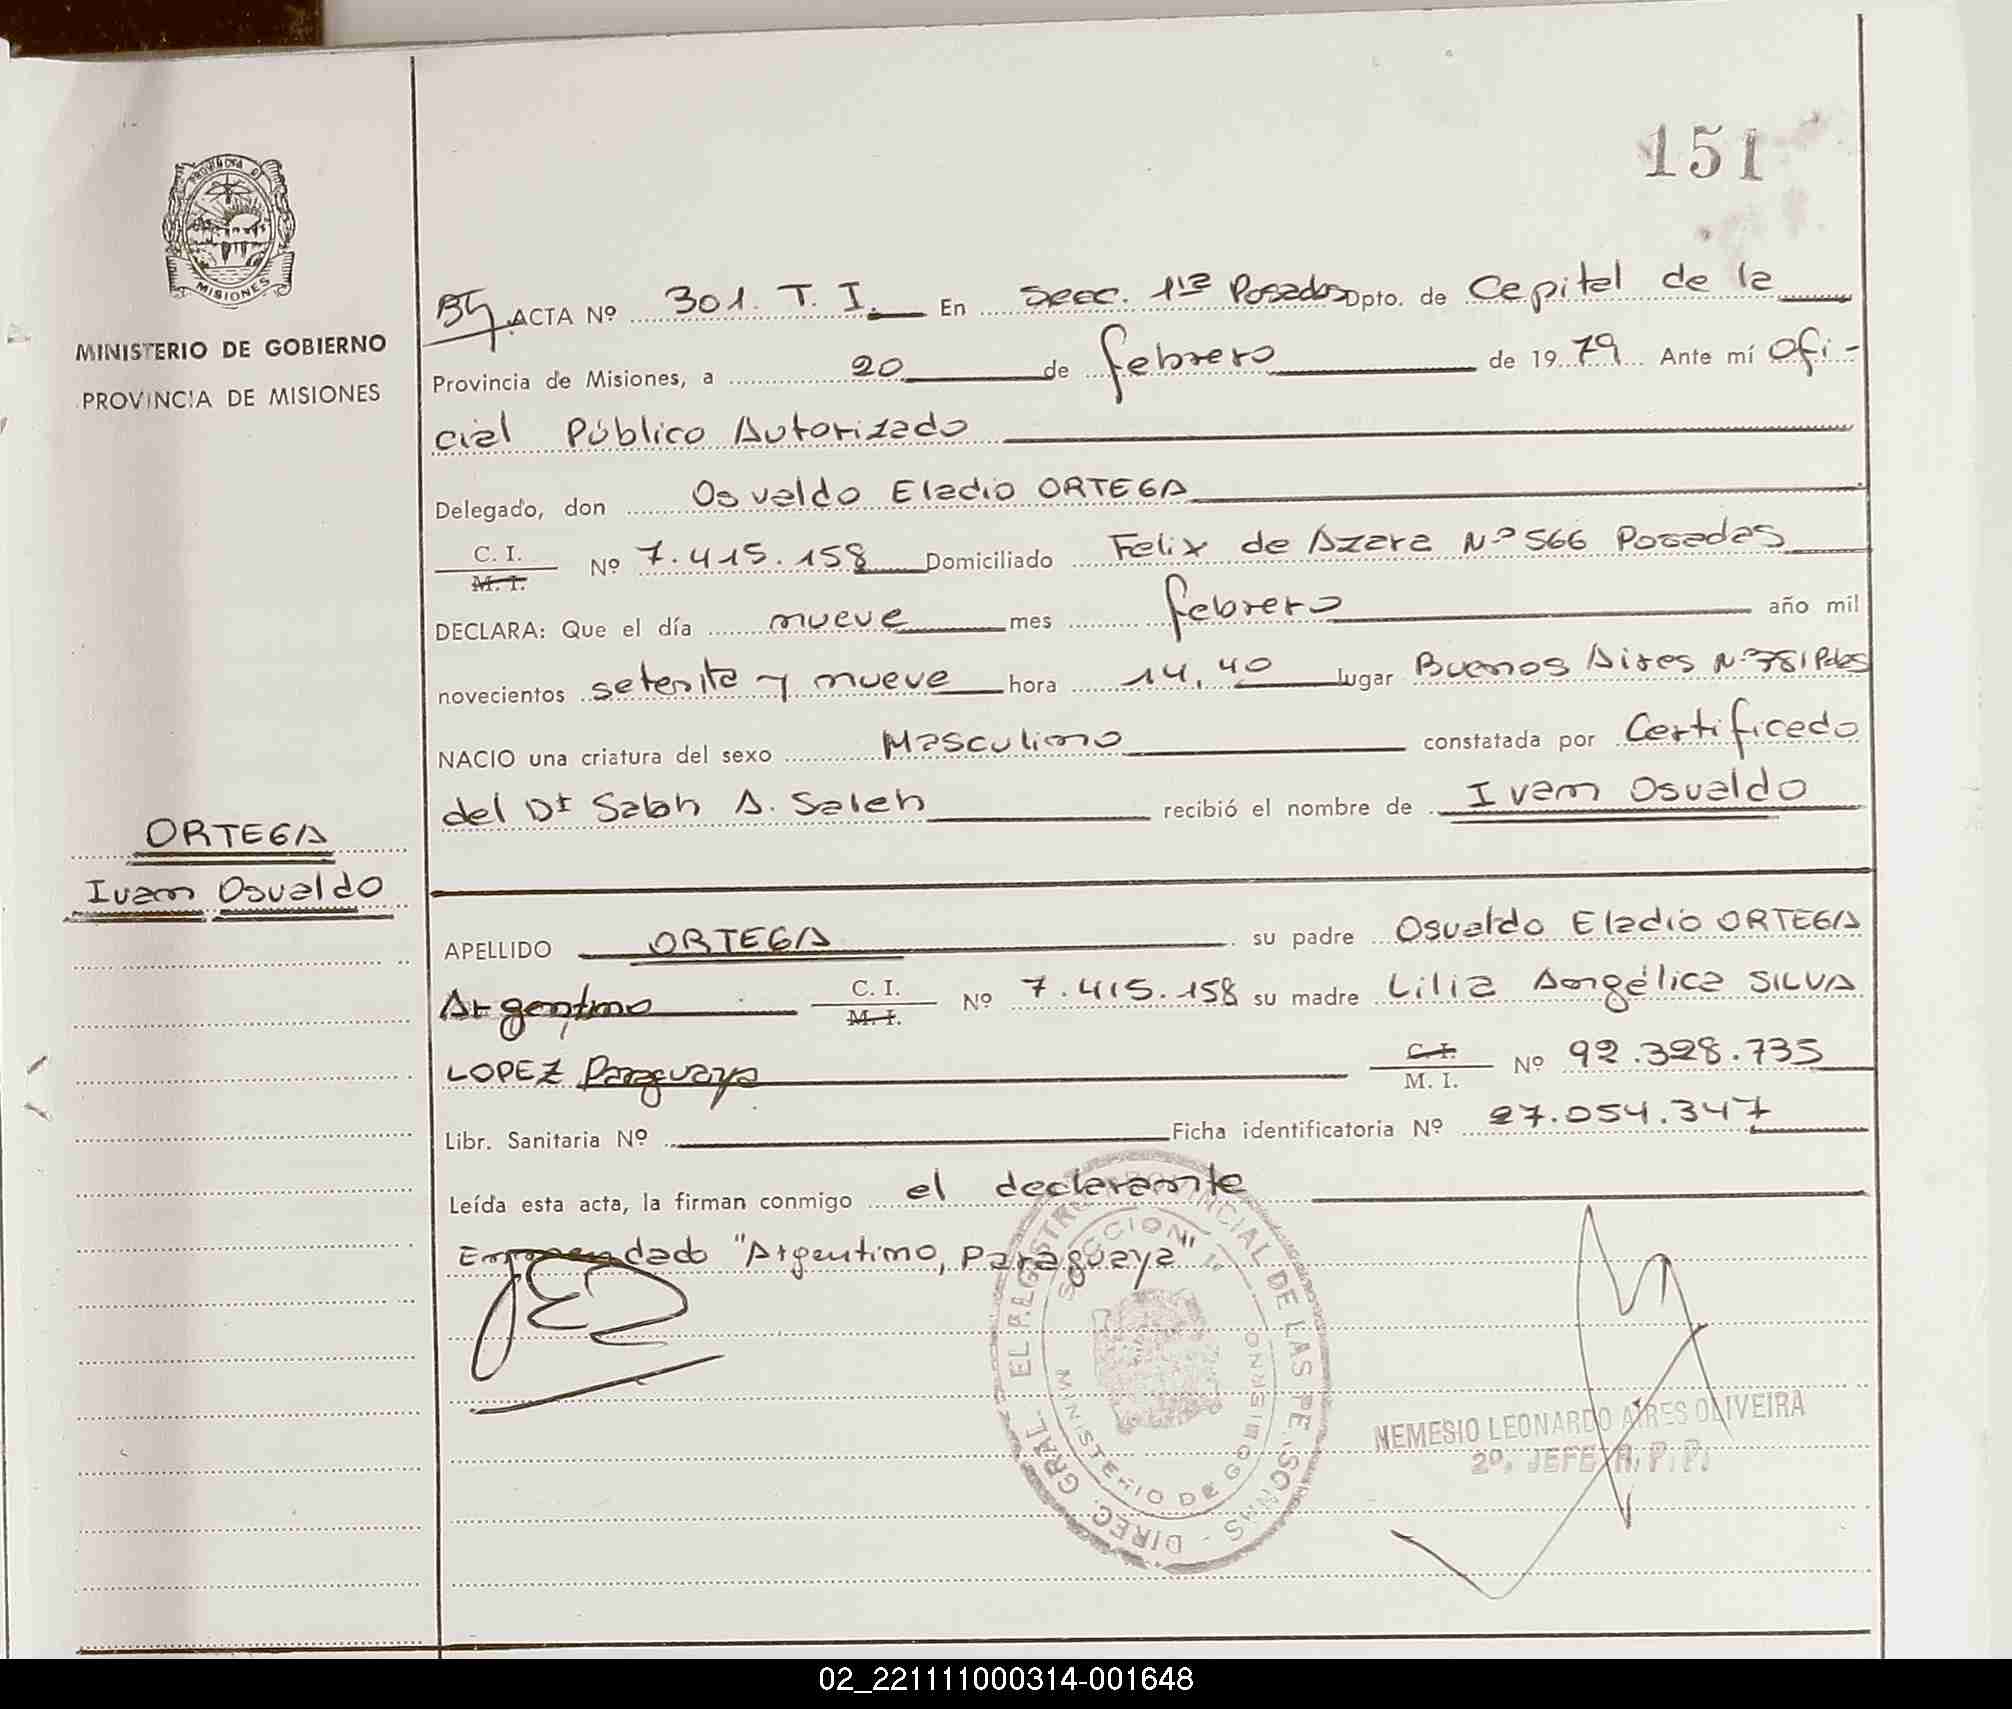 151
PROVINCIA DE
MISIONES
MINISTERIO DE GOBIERNO
PROVINCIA DE MISIONES
ACTA Nº 301. T. I. En Secc. 1ra Posadas Dpto. de Capital de la
Provincia de Misiones, a 20 de febrero de 1979 Ante mí Ofi-
cial Público Autorizado
Delegado, don Osvaldo Eladio ORTEGA
C. I.
M. I.
Nº 7.415.158 Domiciliado Felix de Azara Nº 566 Posadas
DECLARA: Que el día nueve mes febrero año mil
novecientos setenta y nueve hora 14,40 lugar Buenos Aires Nº 781 Pdas
NACIO una criatura del sexo Masculino constatada por Certificado
del Dr Sabh A. Saleh recibió el nombre de Ivan Osvaldo
ORTEGA
Ivan Osvaldo
APELLIDO ORTEGA su padre Osvaldo Eladio ORTEGA
Argentino C. I. M. I. Nº 7.415.158 su madre Lilia Angélica SILVA
LOPEZ Paraguaya C. I. M. I. Nº 92.328.735
Libr. Sanitaria Nº Ficha identificatoria Nº 27.054.347
Leída esta acta, la firman conmigo el declarante
Enmendado "Argentino, Paraguaya"
DIREC. GRAL. DE LAS PERSONAS
SECCION 1a
MINISTERIO DE GOBIERNO
NEMESIO LEONARDO AIRES OLIVEIRA
2º. JEFE R. P. P.
02_221111000314-001648